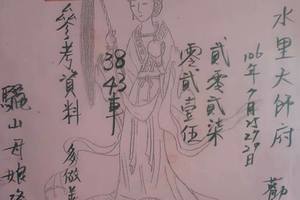 水里大師府 勸
106年9月27.29日
貳零貳柒
零貳壹伍
38 43車
參考資料 多做
驪山母娘